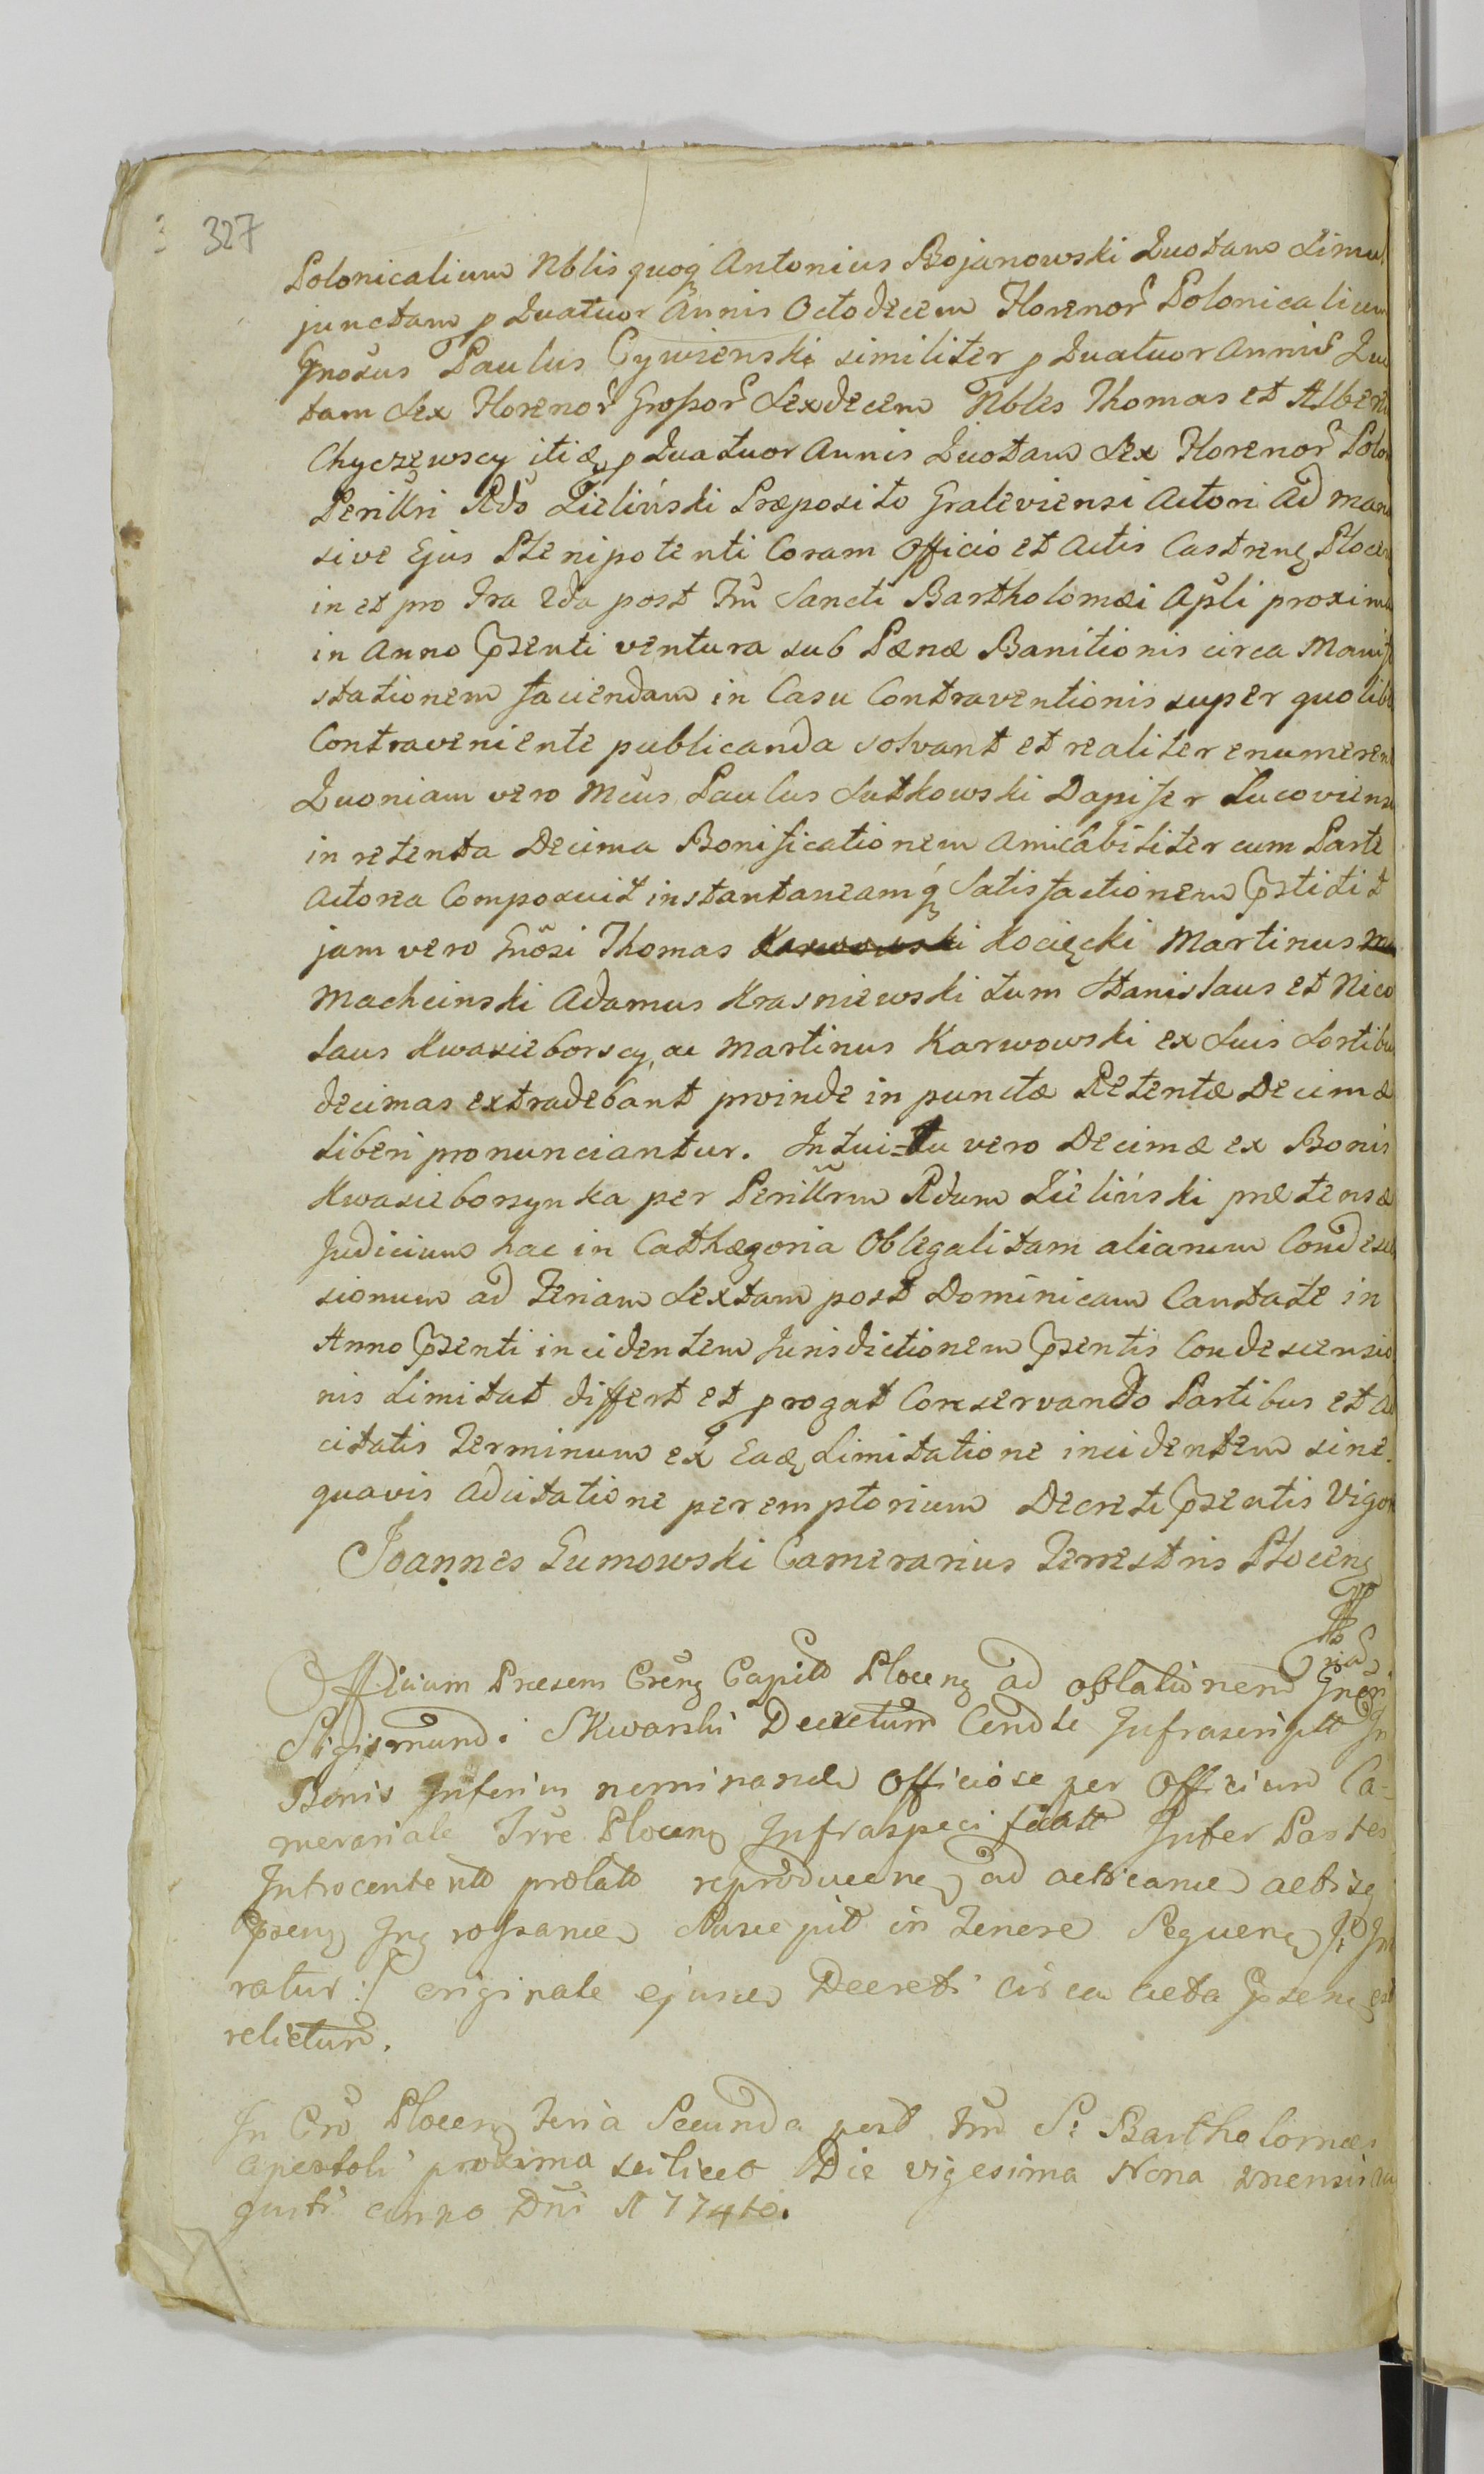 327
Polonicalium Nblis quoq Antonius Bojanowski Quotam Simul
junctam p Quatuor Annis Octodecem Florenor Polonicalium
Gnosus Paulus Cywienski similiter p Quatuor Annis Quo
tam Sex Florenor Grossor Sexdecem Nbles Thomas et Albert
Chyczewscy itid p Quatuor Annis Quotam Sex Florenor Polo
Perillri Rdo Zieliński Præposito Graleviensi Actori Ad man
sive Ejus Plenipotenti Coram Officio et Actis Castren Plocen
in et pro Fra 2da post Fm Sancti Bartholomæi Apli proxima
in Anno Psenti ventura sub Pænæ Banitionis circa Manife
stationem faciendam in Casu Contraventionis super quolibe
Contraveniente publicanda solvant et realiter enumerent
Quoniam vero Mcus Paulus Sutkowski Dapifer Lucoviens
in retenta Decima Bonificationem amicabiliter cum Parte
Actorea Composuit instantaneamq Satisfactionem Pstitit
jam vero Gnosi Thomas Karwowski Kocięcki Martinus
Machcinski Adamus Krasniewski tum Stanislaus et Nico
laus Kwasieborscy, ac Martinus Karwowski ex Suis Sortibus
decimas extradebant proinde in punctæ Retentæ Decimæ
liberi pronunciantur. Intui=tu vero Decimæ ex Bonis
Kwasieborzynka per Perillrm Rdum Zieliński prætensæ
Judicium hac in Cathægoria Oblegalitam aliarum Condescen
sionum ad Feriam Sextam post Dominicam Cantate in
Anno Psenti incidentem Jurisdictionem Psentis Condescensio
nis Limitat differt et progat Conservando Partibus et ad
citatis Terminum ex Ead Limitatione incidentem sine
quavis adcitatione peremptorium Decreti Psentis Vigor
Joannes Gumowski Camerarius Terrestris Plocen
Officium Præsens Cren Capitt Plocen ad oblationem Gnosi
Sigismundi Skwarski Decretum Condle Infrascriptt In
Bonis Inferius nominand Officiose per Officium Ca-
merariale Trre Plocen Infraspecificatt Inter Partes
Introcontentt prolatt reproducen ad acticand actisq
Psen Ingrossand Suscepit in tenere Sequen
ratur :/ originale ejusd Decreti circa acta Psen est
relictum.
In Cro Plocen Feria Secunda post Fm S: Bartholomæi
Apostoli proxima scilicet Die vigesima Nona mensis au
gusti anno Dni